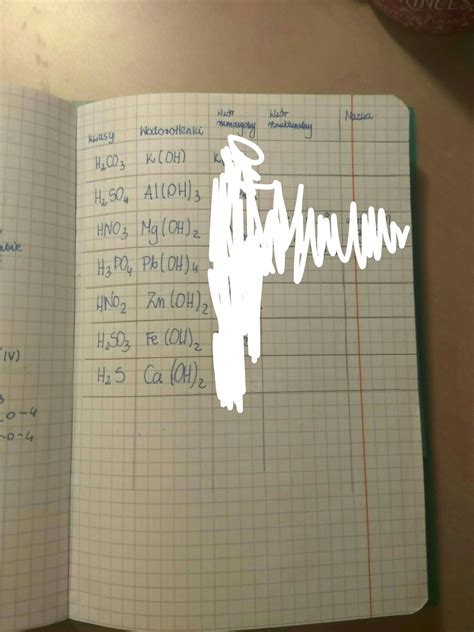 INCES
Kwasy Wodorotlenki Wzór sumaryczny Wzór strukturalny Nazwa
H₂CO₃ K(OH) K
H₂SO₄ Al(OH)₃
HNO₃ Mg(OH)₂
H₃PO₄ Pb(OH)₄
HNO₂ Zn(OH)₂
H₂SO₃ Fe(OH)₂
H₂S Ca(OH)₂
(IV)
0-4
0-4